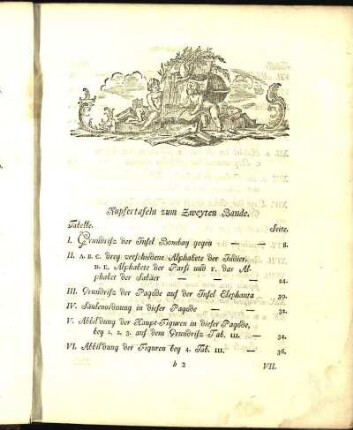 Kupfertafeln zum Zweyten Bande.
Tabelle. Seite.
I. Grundriß der Insel Bombay gegen — — 8.
II. A. B. C. drey verschiedene Alphabete der Indier.
D. E. Alphabete der Parsi und F. das Al-
phabet der Sabäer — — — 24.
III. Grundriß der Pagode auf der Insel Elephanta — 32.
IV. Säulenordnung in dieser Pagode — — 32.
V. Abbildung der Haupt-Figuren in dieser Pagode,
bey 1. 2. 3. auf dem Grundriß Tab. III. — 34.
VI. Abbildung der Figuren bey 4. Tab. III. — 36.
b 2 VII.